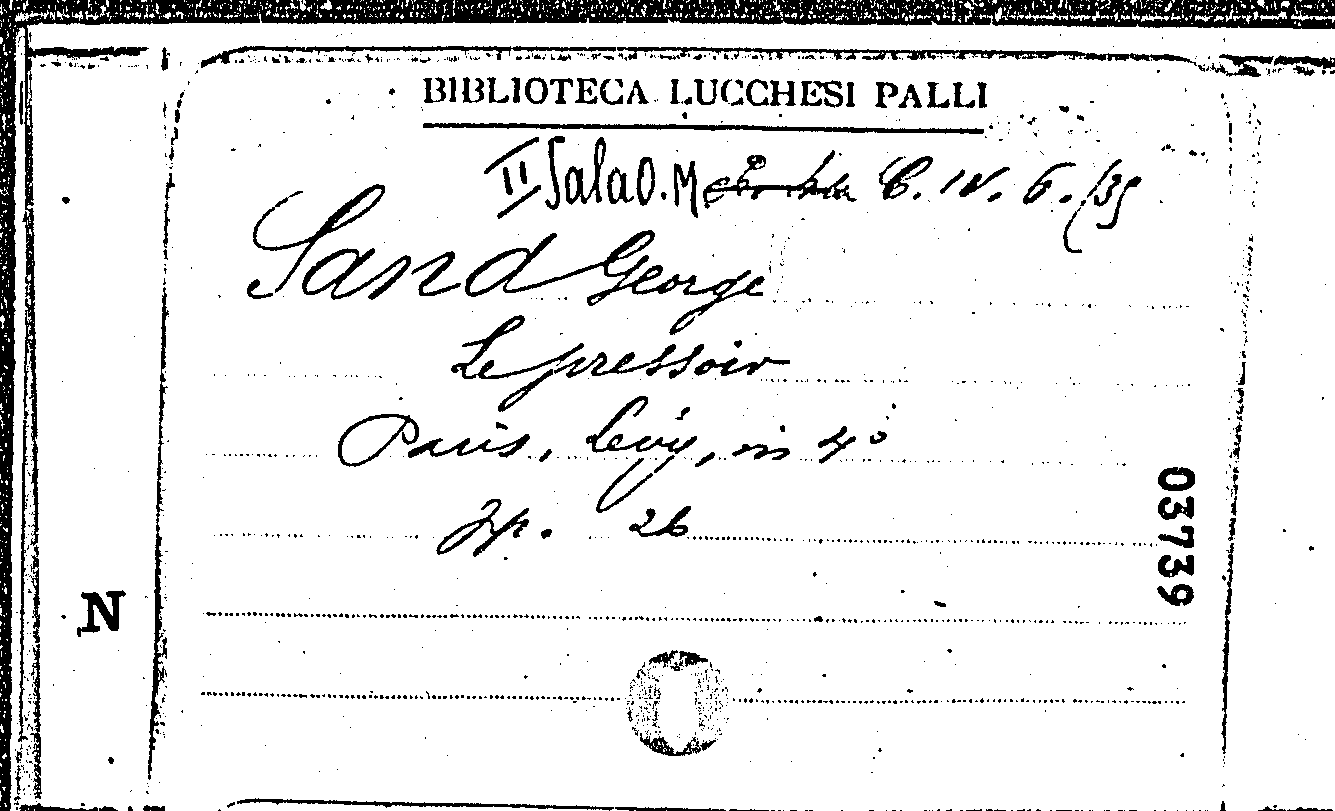 BIBLIOTECA LUCCHESI PALLI
II Sala O. M C. IV. 6. /35
Sand George
Le pressoir
Paris, Levy, in 4°
pp. 26
03739
N